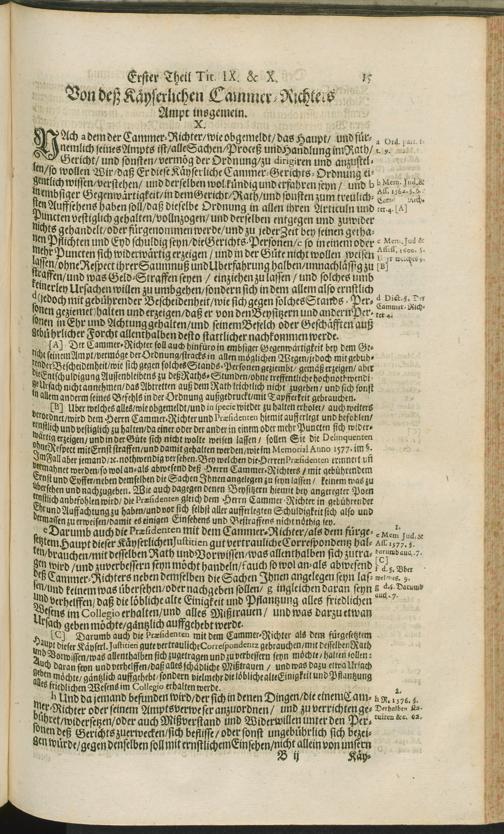 Erster Theil Tit. IX. & X. 15
Von deß Käyserlichen Cammer-Richters
Ampt insgemein.
X.
NAch a dem der Cammer-Richter/wie obgemeldt/das Haupt/ und für-
nemlich seines Ampts ist/alle Sachen/Proceß und Handlung im Rath/
Gericht/ und sonsten/vermög der Ordnung/zu dirigiren und anzustel-
len/so wollen Wir/daß Er diese Käyserliche Cammer-Gerichts-Ordnung ei-
gentlich wissen/verstehen/ und derselben wol kündig und erfahren seyn/ und b
embsiger Gegenwärtigkeit/in dem Gericht/Rath/und sonsten zum treulich-
sten Auffsehens haben soll/daß dieselbe Ordnung in allen ihren Articuln und
Puncten vestiglich gehalten/vollnzogen/und derselben entgegen und zuwider
nichts gehandelt/oder fürgenommen werde/und zu jeder Zeit bey seinen getha-
nen Pflichten und Eyd schuldig seyn/die Gerichts-Personen/c so in einem oder
mehr Puncten sich widerwärtig erzeigen/ und in der Güte nicht wollen weisen
lassen/ohne Respect ihrer Saumnuß und Uberfahrung halben/unnachläßig zu
straffen/und was Geld-Straffen seyen/ einziehen zu lassen/ und solches umb
keinerley Ursachen willen zu umbgehen/sondern sich in dem allem also ernstlich
d jedoch mit gebührender Bescheidenheit/wie sich gegen solches Stands-Per-
sonen geziemet halten und erzeigen/daß er von den Beysitzern und andern Per-
sonen in Ehr und Achtung gehalten/und seinem Befelch oder Geschäfften auß
gebührlicher Forcht allenthalben desto stattlicher nachkommen werde.
[A] Der Cammer-Richter soll auch hinfüro in embsiger Gegenwärtigkeit bey dem Ge-
richt seinem Ampt/vermög der Ordnung/stracks in allen möglichen Wegen/jedoch mit gebüh-
render Bescheidenheit/wie sich gegen solches Stands-Personen geziembt/gemäß erzeigen/aber
die Entschuldigung Aussenbleibens zu deß Raths-Stunden/ohne treffentliche hochnotwendi-
ge Ursach nicht annehmen/das Abtretten auß dem Rath leichtlich nicht zugeben/ und sich sonst
in allem anderm seines Befehls in der Ordnung außgedruckt/mit Tapfferkeit gebrauchen.
[B] Uber welches alles/wie obgemeldt/und in specie wieder zu halten erholet/ auch weiters
verordnet/wird dem Herrn Cammer-Richter und Præsidenten hiemit aufferlegt und befohlen/
ernstlich und vestiglich zu halten/da einer oder der ander in einem oder mehr Puncten sich wider-
wärtig erzeigen/und in der Güte sich nicht wolte weisen lassen/ sollen Sie die Delinquenten
ohne Respect mit Ernst straffen/und damit gehalten werden/wie im Memorial Anno 1577. im §.
Im Fall aber jemand/ꝛc. nothwendig versehen. Bey welchen die Herren Præsidenten erinnert uñ
vermahnet werden/so wol an- als abwesend deß Herrn Cammer-Richters/ mit gebührendem
Ernst und Eyffer/neben demselben die Sachen Jhnen angelegen zu seyn lassen/ keinem was zu
übersehen und nachzugeben. Wie auch dagegen denen Beysitzern hiemit bey angeregter Poen
ernstlich anbefohlen wird/die Præsidenten gleich dem Herrn Cammer-Richter in gebührender
Ehr und Auffachtung zu haben/und vor sich selbst aller aufferlegten Schuldigkeit sich also und
dermassen zu erweisen/damit es einigen Einsehens und Bestraffens nicht nöthig sey.
e Darumb auch die Præsidenten mit dem Cammer-Richter/als dem fürge-
setztem Haupt dieser Käyserlichen Justitien gut vertrauliche Correspondentz hal-
ten/brauchen/mit desselben Rath und Vorwissen/was allenthalben sich zutra-
gen wird/und zuverbessern seyn möcht handeln/f auch so wol an- als abwesend
deß Cammer-Richters neben demselben die Sachen Jhnen angelegen seyn las-
sen/und keinem was übersehen/oder nachgeben sollen/ g ingleichen daran seyn
und verhelffen/daß die löbliche alte Einigkeit und Pflantzung alles friedlichen
Wesens im Collegio erhalten/und alles Mißtrauen/ und was darzu etwan
Ursach geben möchte/gäntzlich auffgehebt werde.
[C] Darumb auch die Præsidenten mit dem Cammer-Richter als dem fürgesetztem
Haupt dieser Käyserl. Justitien gute vertrauliche Correspondentz gebrauchen/mit desselben Rath
und Vorwissen/was allenthalben sich zugetragen und zu verbessern seyn möchte/halten sollen:
Auch daran seyn und verhelffen/daß alles schädliche Mißtrauen/ und was dazu etwa Ursach
geben möchte/gäntzlich auffgehebt/sondern vielmehr die löbliche alte Einigkeit und Pflantzung
alles friedlichen Wesens im Collegio erhalten werde.
h Und da jemand befunden wird/der sich in denen Dingen/die einem Cam-
mer-Richter oder seinem Amptsverweser anzuordnen/ und zu verrichten ge-
bühret/widersetzen/oder auch Mißverstand und Widerwillen unter den Per-
sonen deß Gerichts zu erwecken/sich befliesse/oder sonst ungebührlich sich bezei-
gen würde/gegen denselben soll mit ernstlichem Einsehen/nicht allein von unsern
B ij Käy-
a Ord. part. 1.
b Mem. Jud. &
Ass. 1562. §.
[A]
c Mem. Jud. &
Assess. 1600. §.
[B]
d Dict. §. Der
Cammer-Rich-
ter
1.
e Mem. Jud. &
Ass. 1577. §.
darumb auch. 7.
[C]
f d. §. Uber
welches. 9.
g d. §. Darumb
auch. 7.
2.
h R. 1576. §.
Derhalben